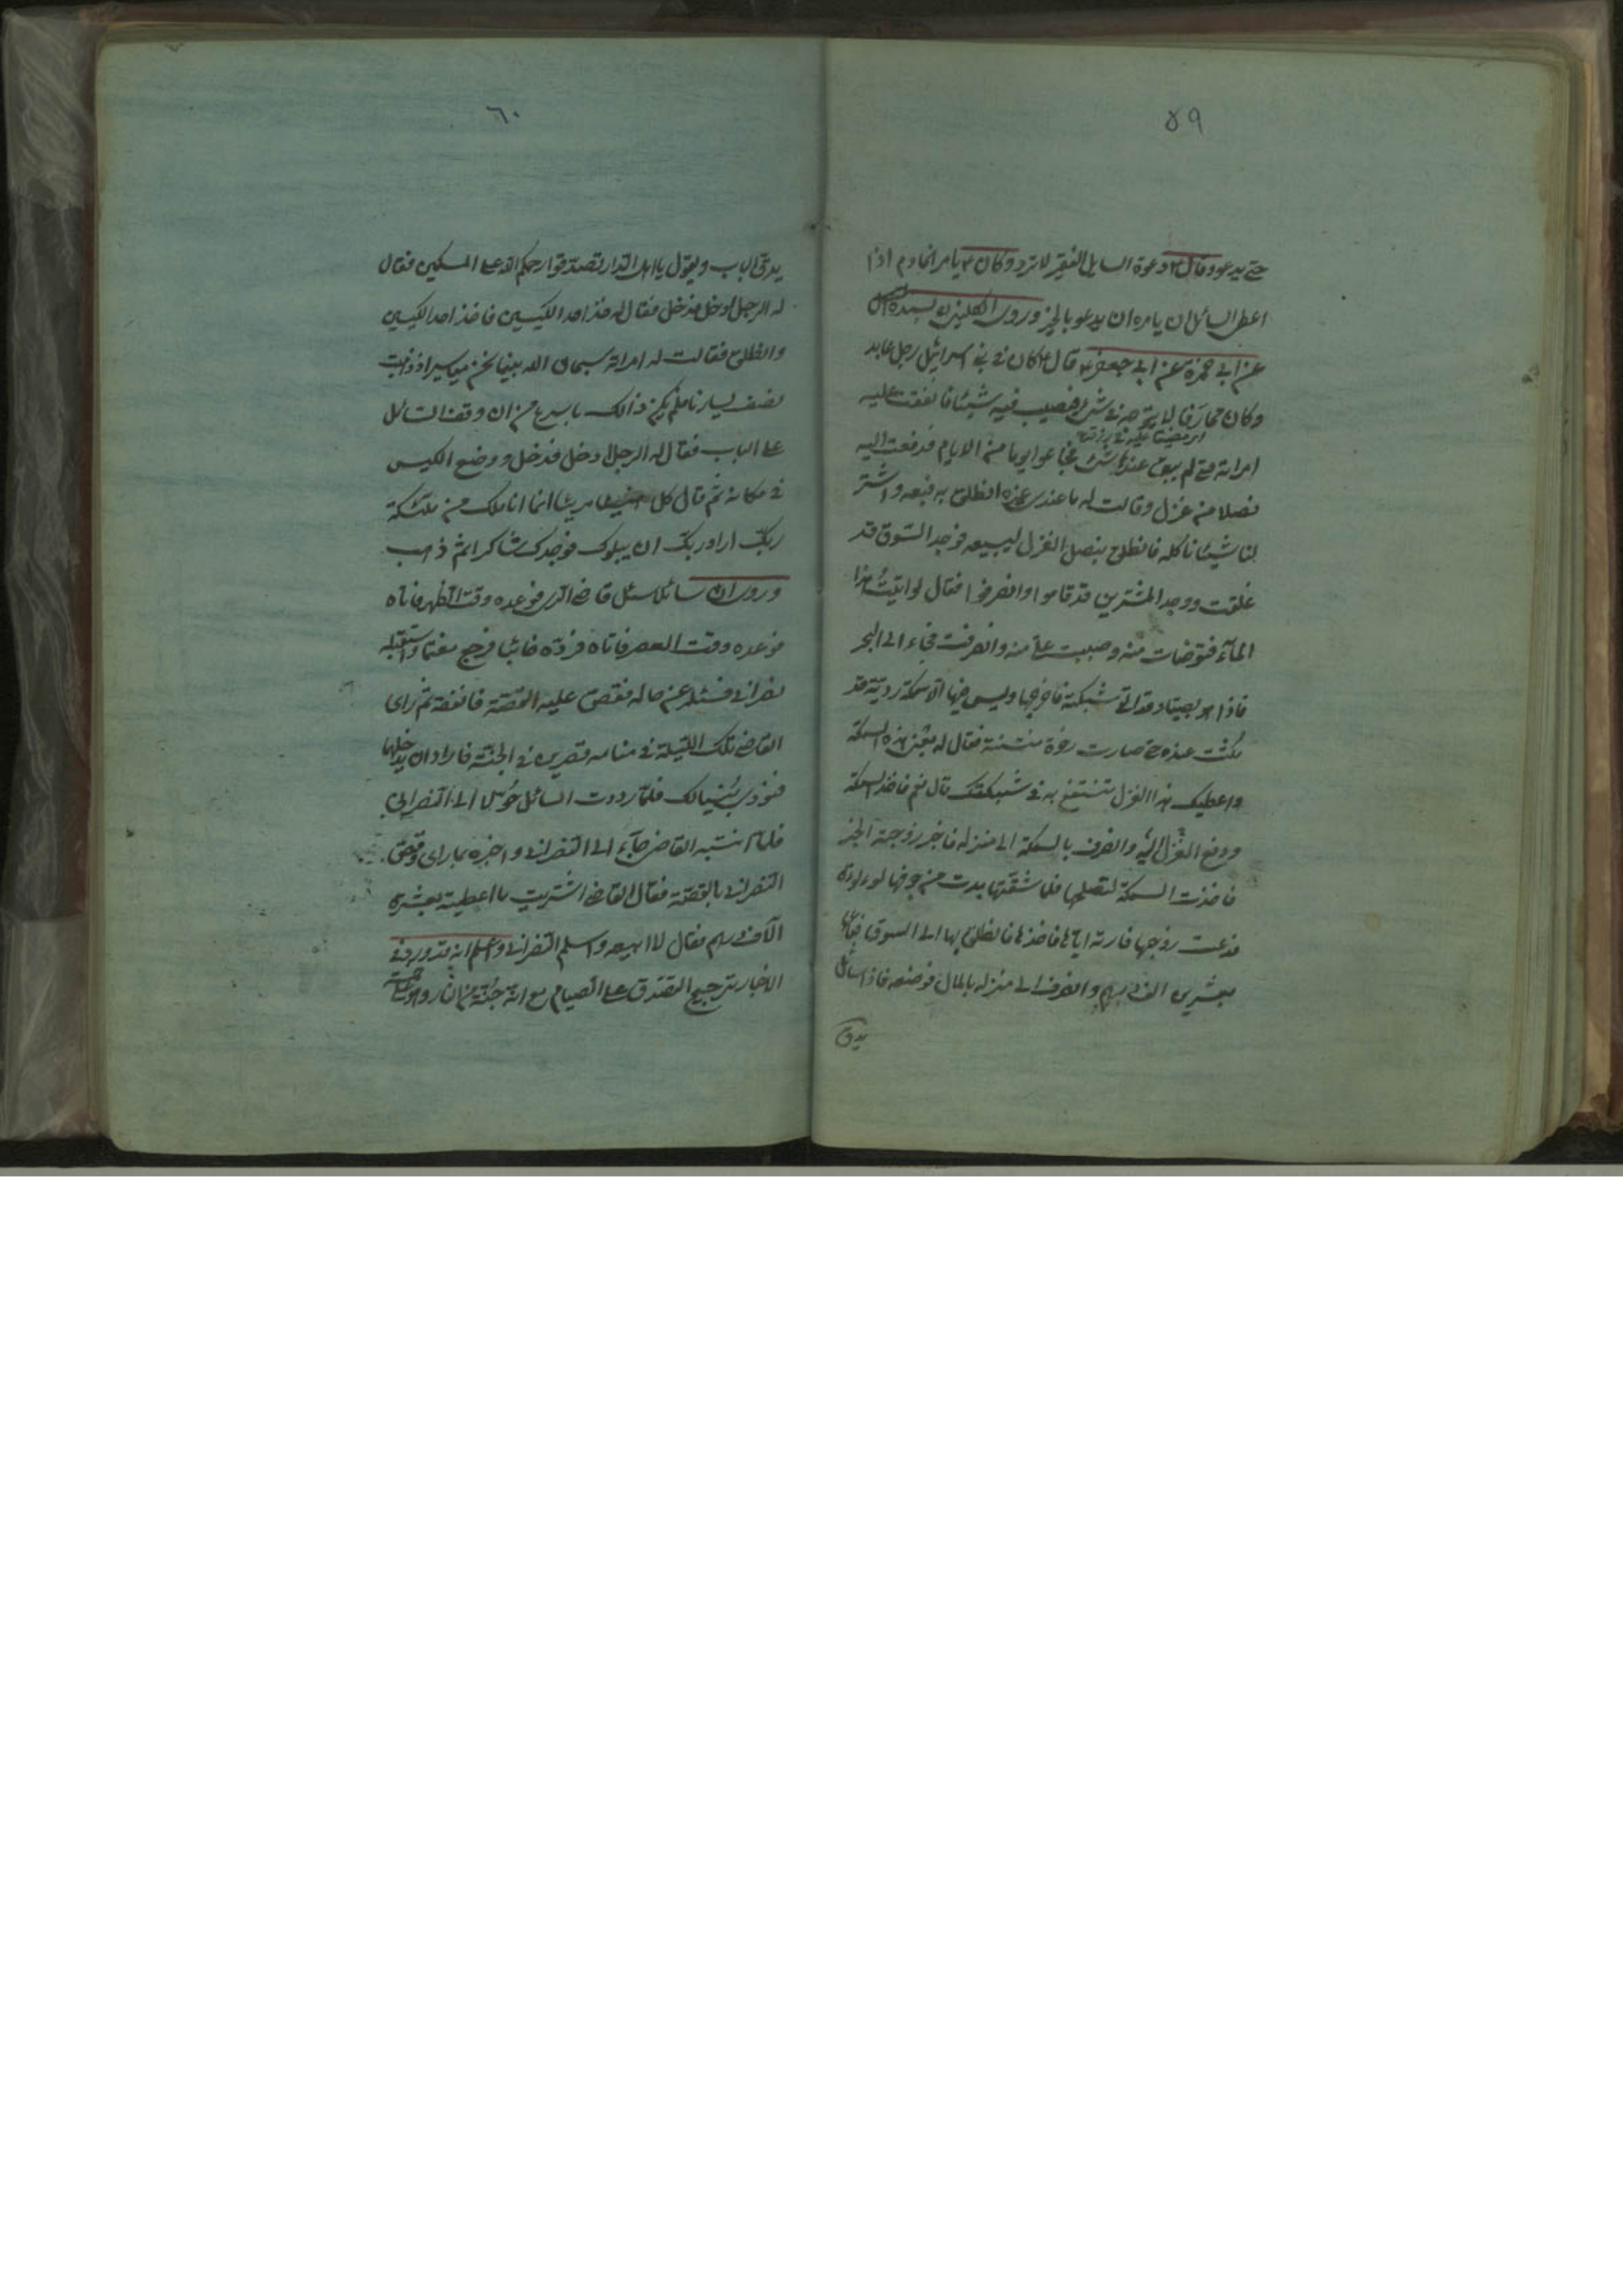 ٥٩
حتى يدعو وقال ع دعوة السايل الفقير لا ترد وكان ع يامر الخادم اذا
اعطى السائل ان يامره ان يدعو بالخير وروى الكليني بسنده
عن ابى حمزة عن ابى جعفر ع قال كان فى بنى اسرائيل رجل عابد
وكان محارفا لا يتوجه فى شئ فيصيب فيه شيئا فانفقت عليه
امراته حتى لم يبق عندها شئ فجاعوا يوما من الايام فدفعت اليه
نصلا من غزل وقالت له ما عندى غيره انطلق به فبعه واشتر
لنا شيئا ناكله فانطلق بنصل الغزل ليبيعه فوجد السّوق قد
غلقت ووجد المشترين قد قاموا وانصرفوا فقال لو اتيت هذا
المآء فتوضات منه وصببت علىّ منه وانصرفت فجاء الى البحر
فاذا هو بصيّاد قد القى شبكته فاخرجها وليس فيها الّا سمكة رديّة قد
مكثت عنده حتى صارت رخوة منتنة فقال له بعنى هذه السمكة
واعطيك هذا الغزل تنتفع به فى شبكتك قال نعم فاخذ السمكة
ودفع الغزل اليه وانصرف بالسمكة الى منزله فاخبر زوجته الخبر
فاخذت السمكة لتصلحها فلما شقّتها بدت من جوفها لوءلوءة
فدعت زوجها فارته ايّاها فاخذها فانطلق بها الى السوق فباعها
بعشرين الف درهم وانصرف الى منزله بالمال فوضعه فاذا سائل
يدق
٦٠
يدقّ الباب ويقول يا اهل الدّار تصدّقوا رحمكم الله على المسكين فقال
له الرجل ادخل فدخل فقال له خذ احد الكيسين فاخذ احد الكيسين
وانطلق فقالت له امراته سبحان الله بينما نحن مياسير اذ ذهبت
بنصف يسارنا فلم يكن ذالك باسرع من ان وقف السّائل
على الباب فقال له الرجل ادخل فدخل ووضع الكيس
فى مكانه ثم قال كل هنيئا مريئا انما انا ملك من ملئكة
ربّك اراد ربّك ان يبلوك فوجدك شاكرا ثم ذهب
وروى ان سائلا سئل قاضى الرى فوعده وقت الظهر فاتاه
فوعده وقت العصر فاتاه فردّه خائبا فرجع مغتمّا واستقبله
نصرانى فسئله عن حاله فقصّ عليه القصّة فانفقه ثم راى
القاضى تلك الليلة فى منامه قصرين فى الجنّة فاراد ان يدخلها
فنودى بُنيا لك فلمّا رددت السائل حُوّلا الى النصرانى
فلما انتبه القاضى جآء الى النصرانى واخبره بما راى وقصّ
النصرانى بالقصّة فقال القاضى اشتريت ما اعطيته بعشرة
آلاف درهم فقال لا ابيعه واسلم النصرانى واعلم انه قد ورد فى
الاخبار ترجيح التصدّق على الصيام مع انه جُنّة من النار